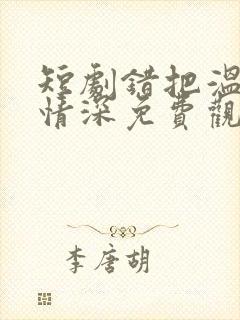 短劇錯把溫
情深免費觀
李唐胡